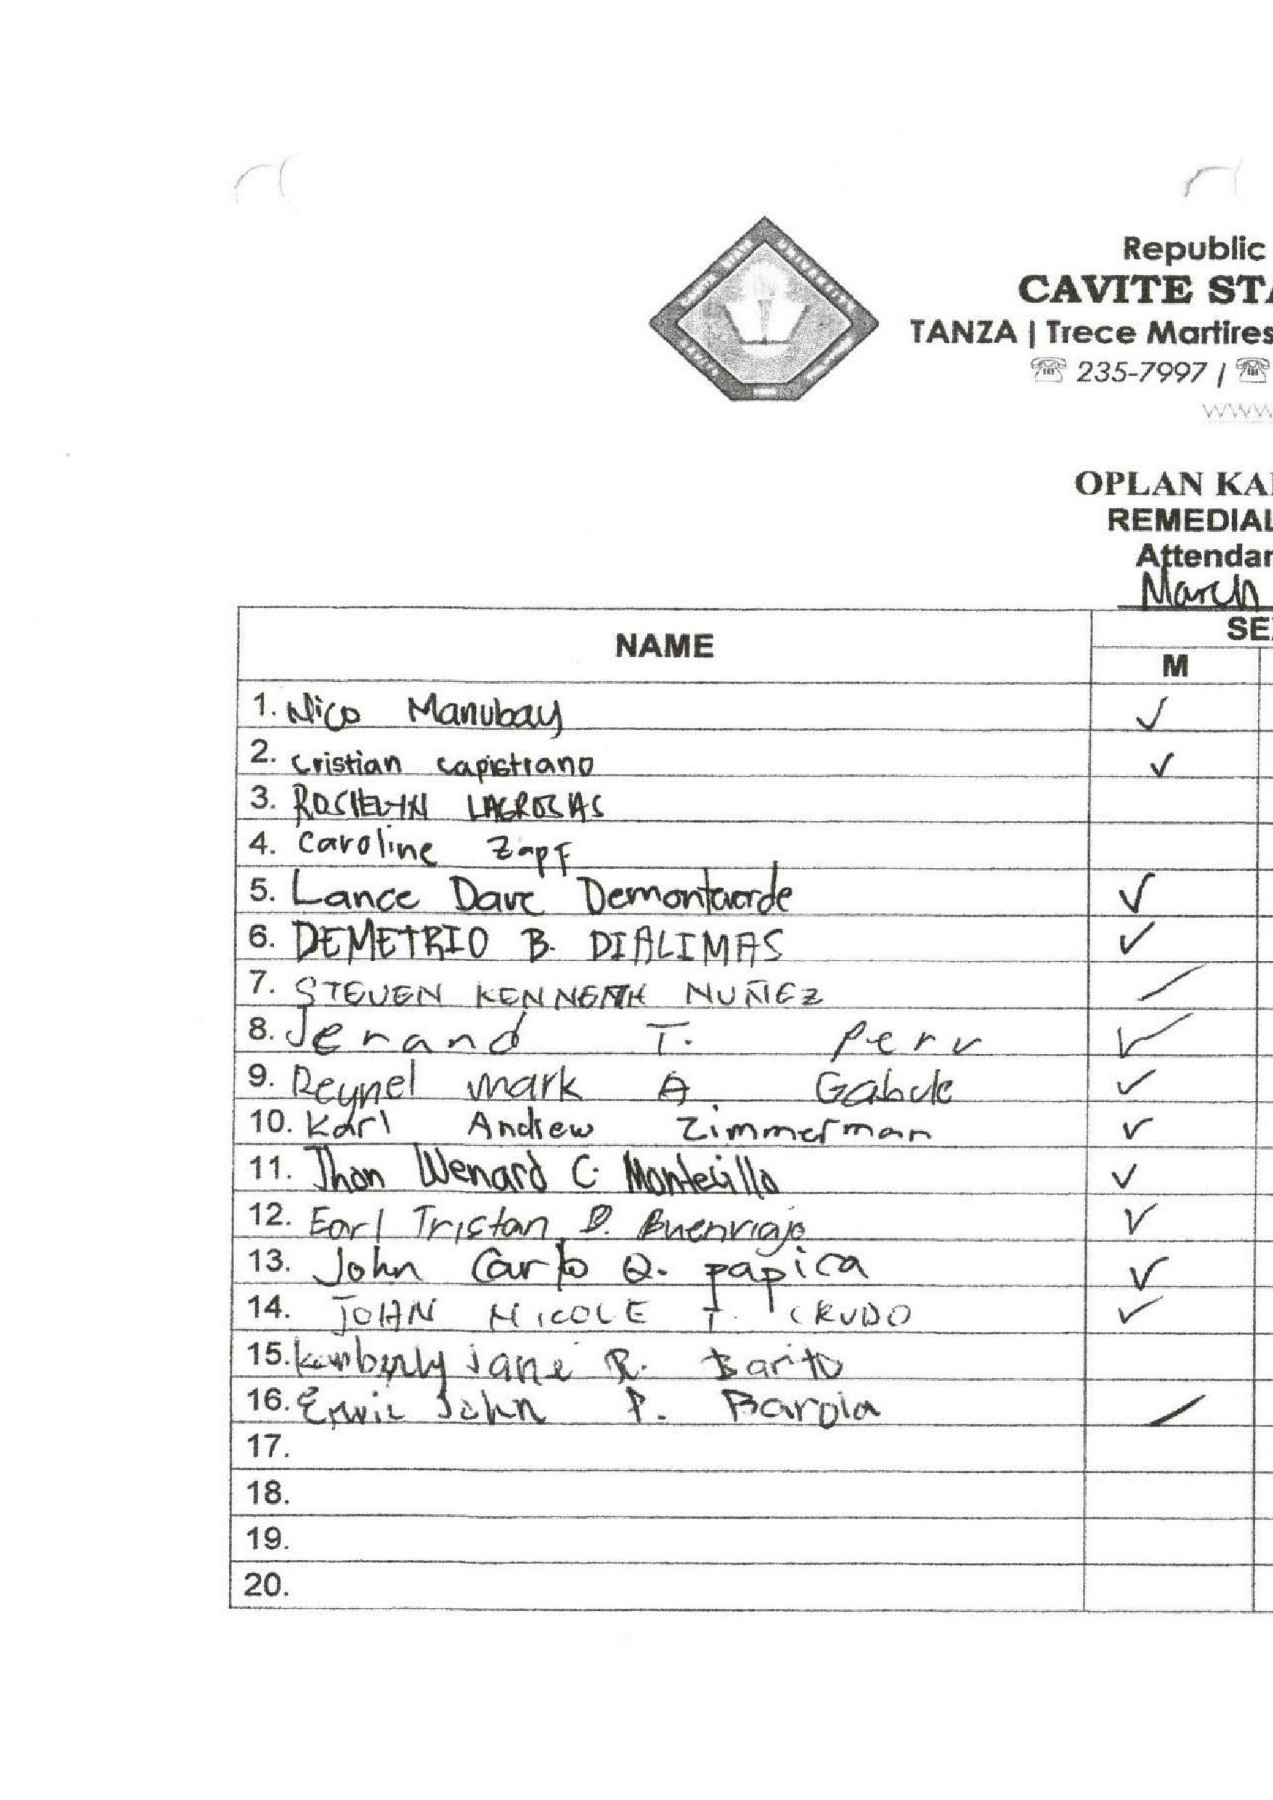 Republic
CAVITE STA
TANZA | Trece Martires
☏ 235-7997 / ☏
www
OPLAN KA
REMEDIAL
Attendan
March
NAME
SE
M
1. Nico Manubay ✓
2. Cristian Capistrano ✓
3. ROSHELYN LAGROSAS
4. Caroline Zapf
5. Lance Dave Demonteverde ✓
6. DEMETRIO B. DIALIMAS ✓
7. STEVEN KENNETH NUÑEZ /
8. Jenand T. Peru ✓
9. Reynel mark A Gabule ✓
10. Karl Andrew Zimmerman ✓
11. Jhon Wenard C. Montecillo ✓
12. Earl Tristan D. Buenviaje ✓
13. John Carlo Q. papica ✓
14. JOHN NICOLE T. CRUDO ✓
15. Kimberly Jane R. Barito
16. John P. Barola /
17.
18.
19.
20.